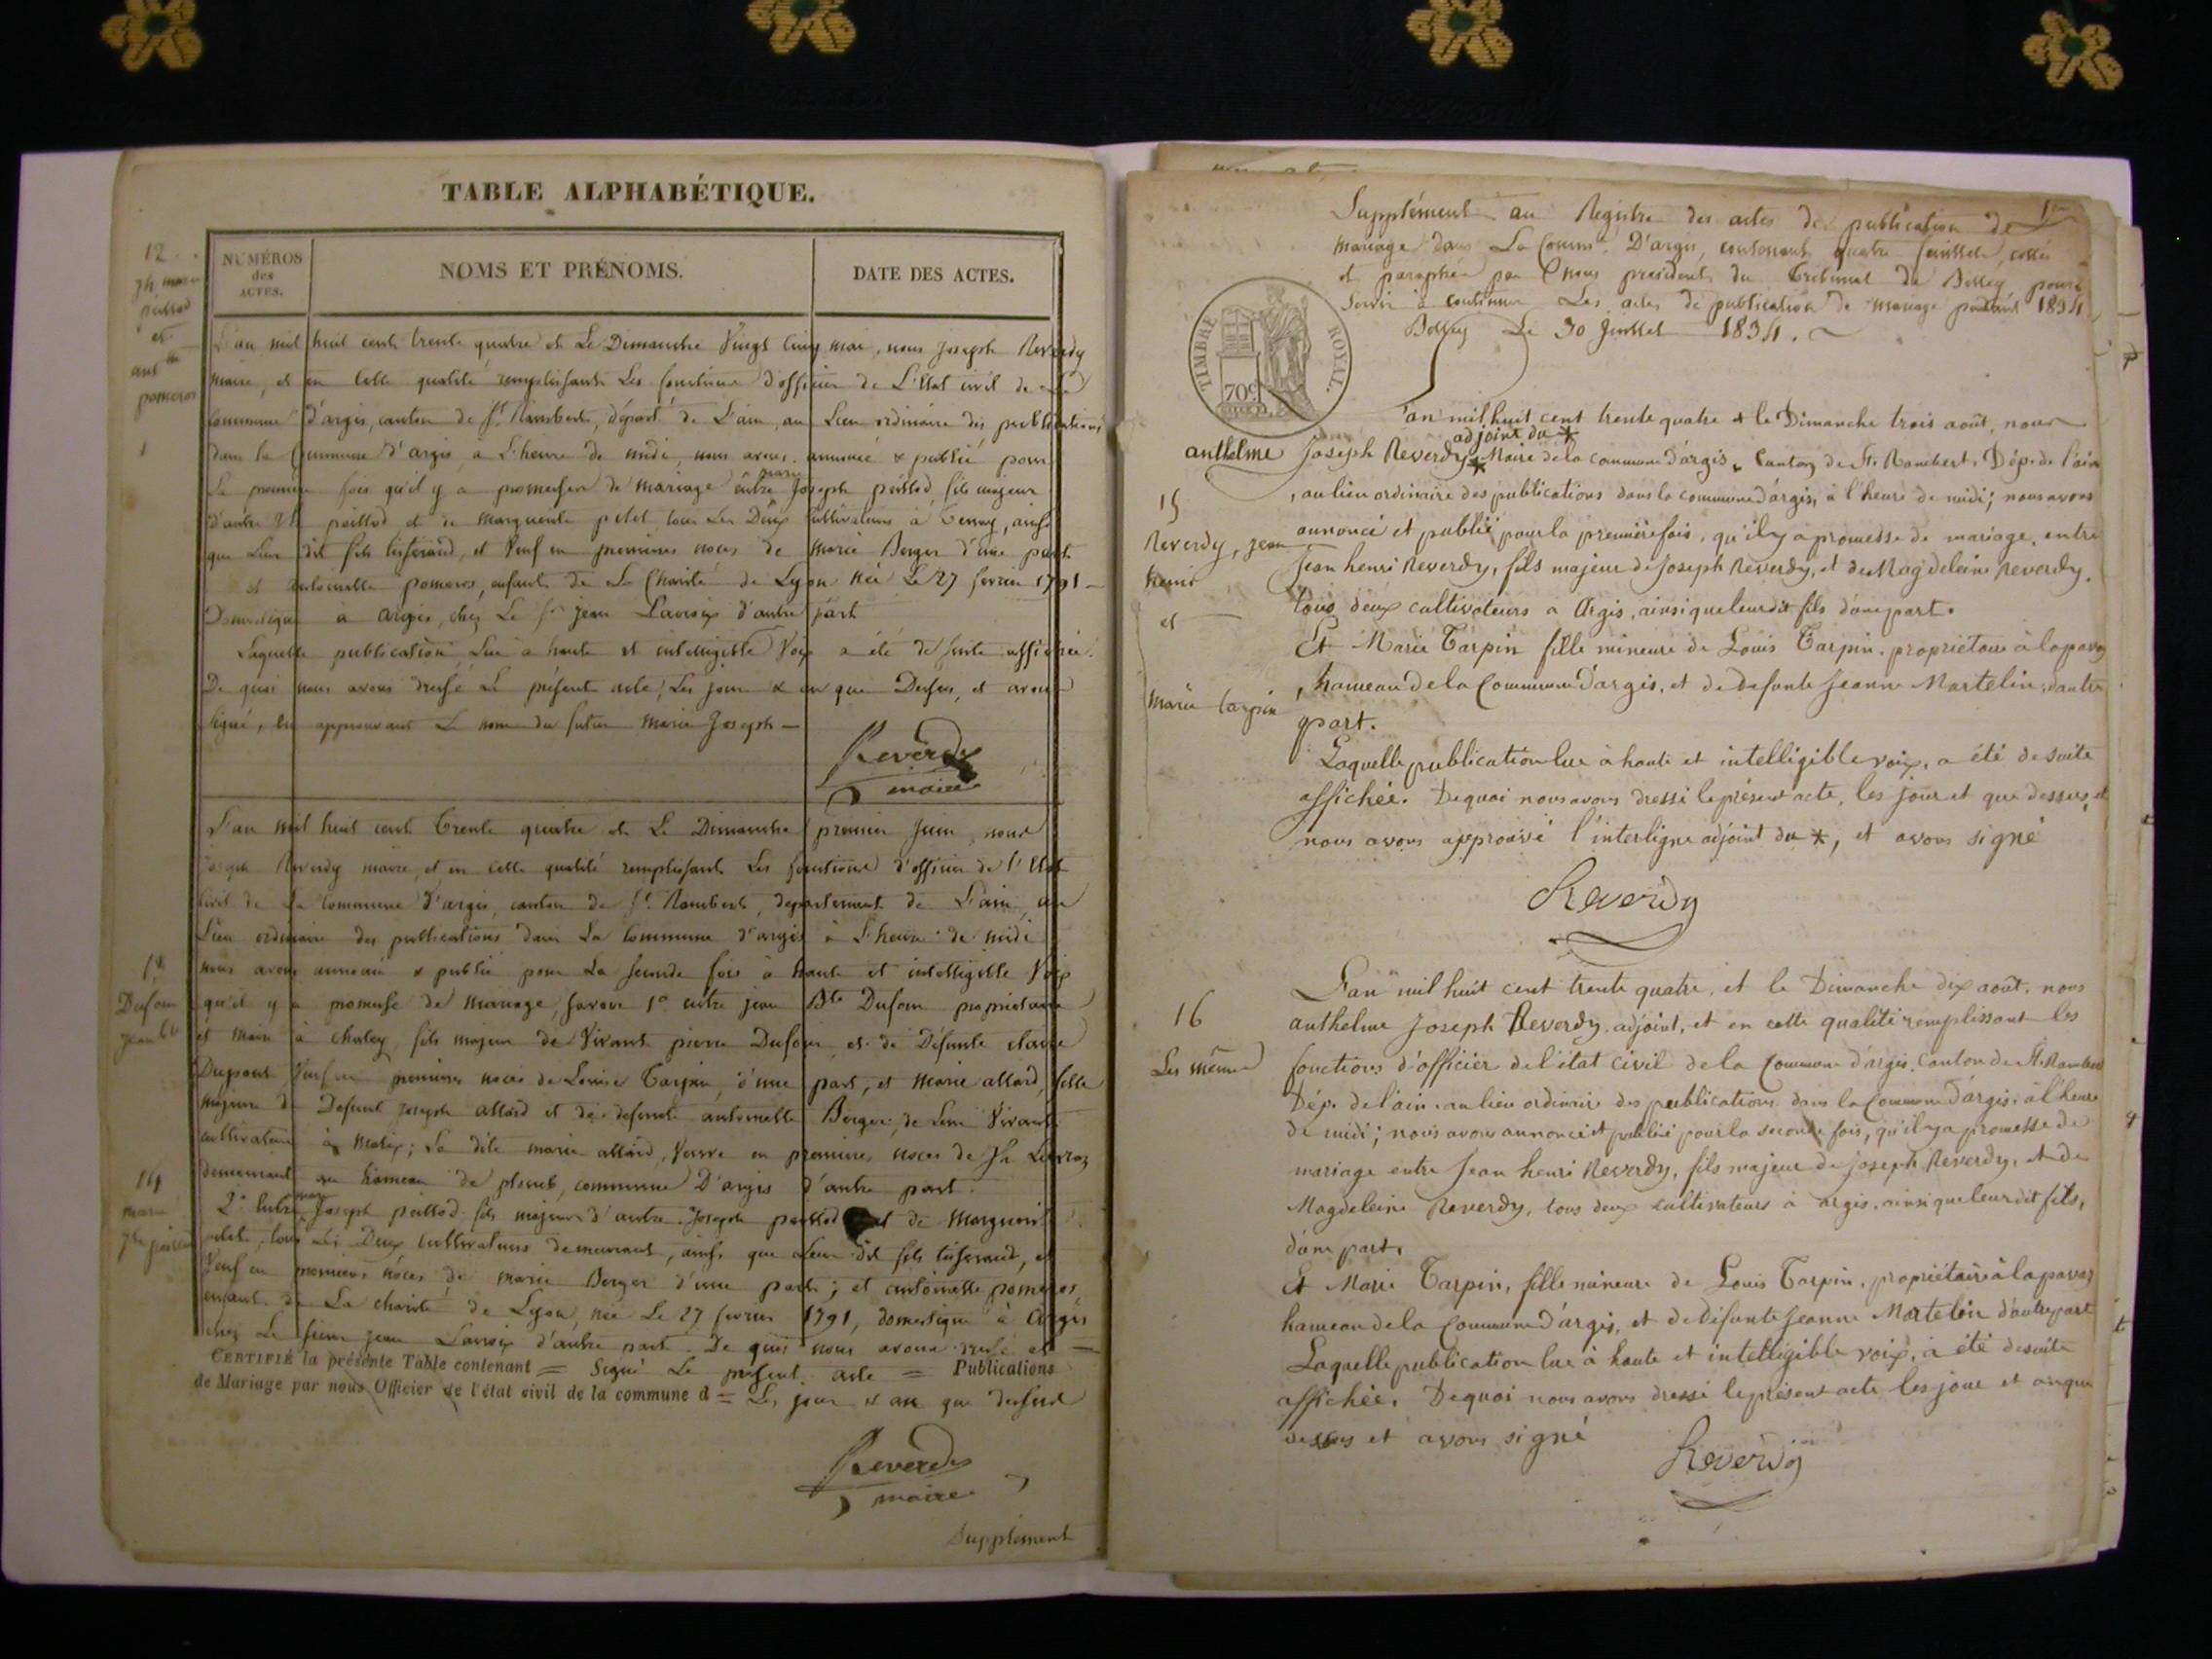 TABLE ALPHABÉTIQUE.
NUMÉROS des ACTES.
NOMS ET PRÉNOMS.
DATE DES ACTES.
12
et
pomeros
L'an mil huit cent trente quatre et Le Dimanche Vingt cinq mai, nous Joseph Reverdy
maire, et en cette qualité remplissant Les fonctions d'officier de L'Etat civil de La
commune d'argis, canton de St Rambert, départ.t de L'ain, au Lieu ordinaire des publications
dans la Commune d'argis, à L'heure de midi, nous avons annoncé & publié pour
La première fois qu'il y a promesse de mariage entre marie Joseph peillod, fils majeur
d'autre Jh peillod et de marguerite petet tous Les Deux cultivateurs à , ainsi
que Leur dit fils tisserand, et Veuf en premières noces de Marie Berger d'une part
et antoinette pomeros, enfant de La Charité de Lyon née Le 27 fevrier 1791 —
Domestique à argis, chez Le Sr jean Lavroix d'autre part
Laquelle publication Lue à haute et intelligible Voix a été de suite affichée.
De quoi nous avons dressé Le présent acte, Les jour & an que Dessus, et avons
signé, en approuvant Le nom du futur marie Joseph —
Reverdy
maire
L'an mil huit cent trente quatre et Le Dimanche premier Juin, nous
Joseph Reverdy maire, et en cette qualité remplissant Les fonctions d'officier de l'Etat
civil de La Commune d'argis, canton de St Rambert, département de L'ain, au
Lieu ordinaire des publications dans La Commune d'argis à L'heure de midi
nous avons annoncé & publié pour La seconde fois à haute et intelligible Voix
13
Dufour
jean bte
qu'il y a promesse de mariage, savoir 1° entre jean Bte Dufour propriétaire
et maire à chaley, fils majeur de Vivant pierre Dufour et de Défunte claire
Dupont Veuf en premières noces de Louise Tarpin, d'une part, et marie allard, fille
majeure de Defunt joseph allard et de defunte antoinette Berger, de Leur Vivant
cultivateurs à ; La dite marie allard, Veuve en premières noces de Jh
demeurant au hameau de plomb, commune D'argis d'autre part.
14
marie
2° Entre marie Joseph peillod fils majeur d'autre Joseph peillod et de Marguerite
petet, tous Les Deux cultivateurs demeurant, ainsi que Leur dit fils tisserand, et
Veuf en premières noces de marie Berger d'une part; et antoinette pomeros,
enfant de La charité de Lyon, née Le 27 fevrier 1791, domestique à Argis
chez Le sieur jean Lavroix d'autre part. De quoi nous avons dressé et —
CERTIFIÉ la présente Table contenant = Signé Le présent acte = Publications
de Mariage par nous Officier de l'état civil de la commune d = Les jour & an que dessus
Reverdy
maire
Supplément
Supplément au Registre des actes de publication de
mariage dans La Comm.e D'argis, contenant quatre feuillets, cotés
et paraphés par Nous président du tribunal de Belley pour
servir à continuer Les actes de publication de mariage pendant 1834
Belley Le 30 Juillet 1834.
TIMBRE ROYAL.
70c
L'an mil huit cent trente quatre & le Dimanche trois août, nous
adjoint du *
anthelme Joseph Reverdy * Maire de la commune d'argis, Canton de St. Rambert, Dép. de l'ain
, au lieu ordinaire des publications dans la commune d'argis, à l'heure de midi; nous avons
15
Reverdy, jean
henri
et
marie tarpin
annoncé et publié pour la première fois, qu'il y a promesse de mariage, entre
Jean henri Reverdy, fils majeur de Joseph Reverdy, et de Magdeleine Reverdy.
tous deux cultivateurs à Argis, ainsi que leur dit fils d'une part.
Et Marie Tarpin fille mineure de Louis Tarpin, propriétaire à la
, hameau de la Commune d'argis, et de defunte Jeanne Martelin, d'autre
part.
Laquelle publication lue à haute et intelligible voix, a été de suite
affichée. De quoi nous avons dressé le présent acte, les jour et que dessus, et
nous avons approuvé l'interligne adjoint du *, et avons signé
Reverdy
L'an mil huit cent trente quatre, et le Dimanche dix août, nous
16
Les même
anthelme Joseph Reverdy, adjoint, et en cette qualité remplissant les
fonctions d'officier de l'état civil de la Commune d'argis, Canton de St. Rambert
Dép. de l'ain, au lieu ordinaire des publications dans la Commune d'argis, à l'heure
de midi; nous avons annoncé et publié pour la seconde fois, qu'il y a promesse de
mariage entre Jean henri Reverdy, fils majeur de Joseph Reverdy, et de
Magdeleine Reverdy, tous deux cultivateurs à argis, ainsi que leur dit fils,
d'une part.
Et Marie Tarpin, fille mineure de Louis Tarpin, propriétaire à la
hameau de la Commune d'argis, et de Défunte Jeanne Martelin d'autre part
Laquelle publication lue à haute et intelligible voix, a été de suite
affichée. De quoi nous avons dressé le présent acte les jour et an que
dessus et avons signé
Reverdy